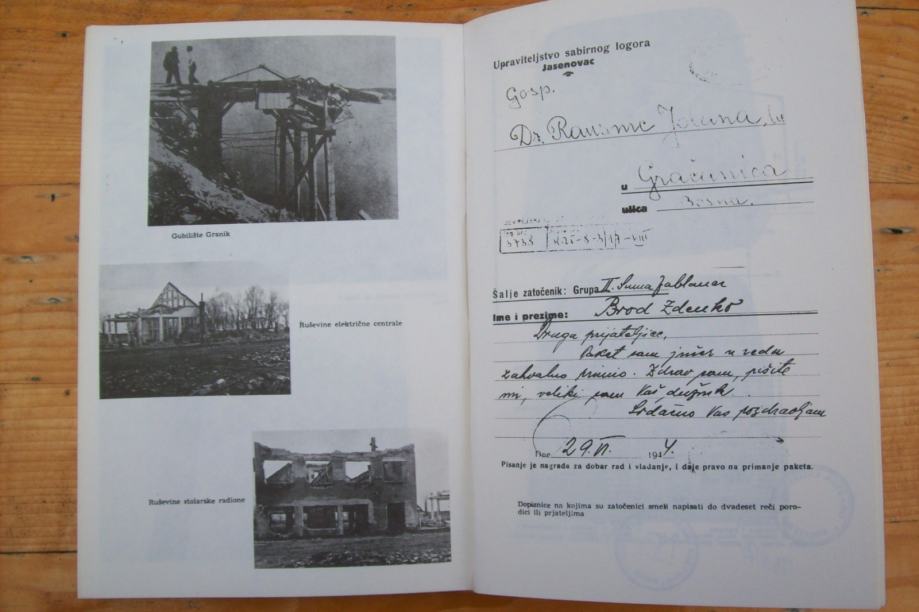 Gubilište Granik
Ruševine električne centrale
Ruševine stolarske radione
Upraviteljstvo sabirnog logora
Jasenovac
Gosp.
Dr.
u Gračanica
ulica Bosna.
Šalje zatočenik: Grupa II.
Ime i prezime: Brod Zdenko
Draga prijateljice,
Paket sam jučer u redu
zahvalno primio. Zdrav sam, pišite
mi, veliki sam Vaš dužnik.
Srdačno Vas pozdravljam
Dne 29. VI. 1944.
Pisanje je nagrada za dobar rad i vladanje, i daje pravo na primanje paketa.
Dopisnice na kojima su zatočenici smeli napisati do dvadeset reči poro-
dici ili prjateljima